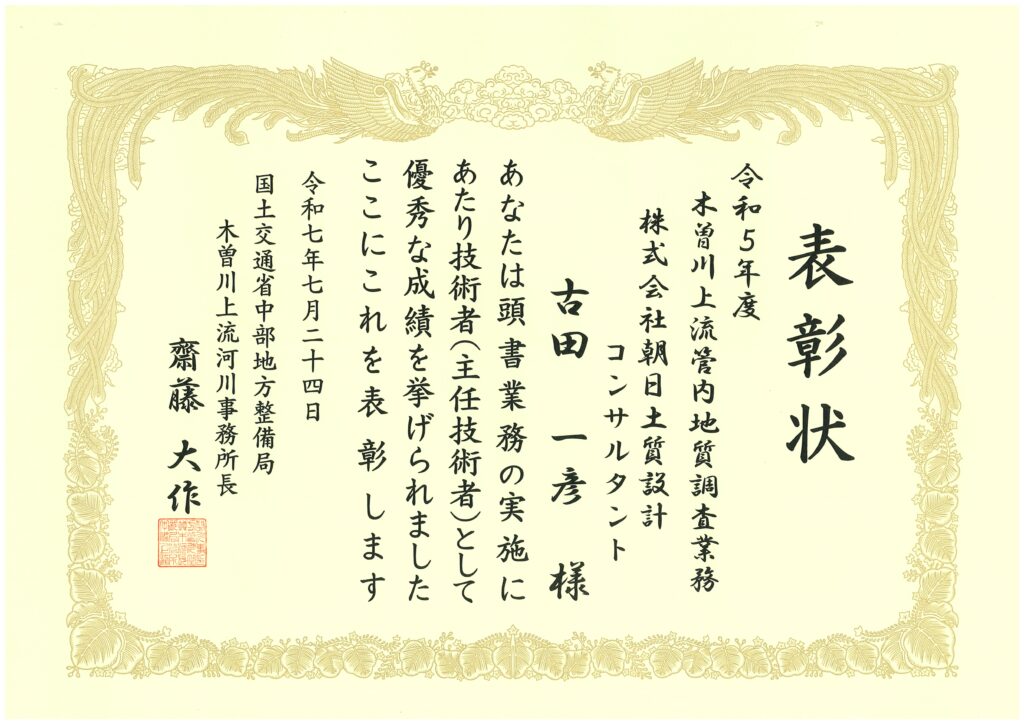 表彰状
令和5年度
木曽川上流管内地質調査業務
株式会社朝日土質設計
コンサルタント
古田 一彦 様
あなたは頭書業務の実施に
あたり技術者(主任技術者)として
優秀な成績を挙げられました
ここにこれを表彰します
令和七年七月二十四日
国土交通省中部地方整備局
木曽川上流河川事務所長
齋藤 大作